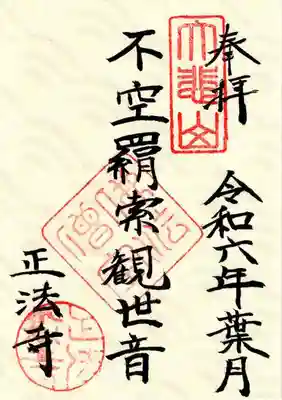 奉拝
大悲山
令和六年葉月
不空羂索観世音
正法寺